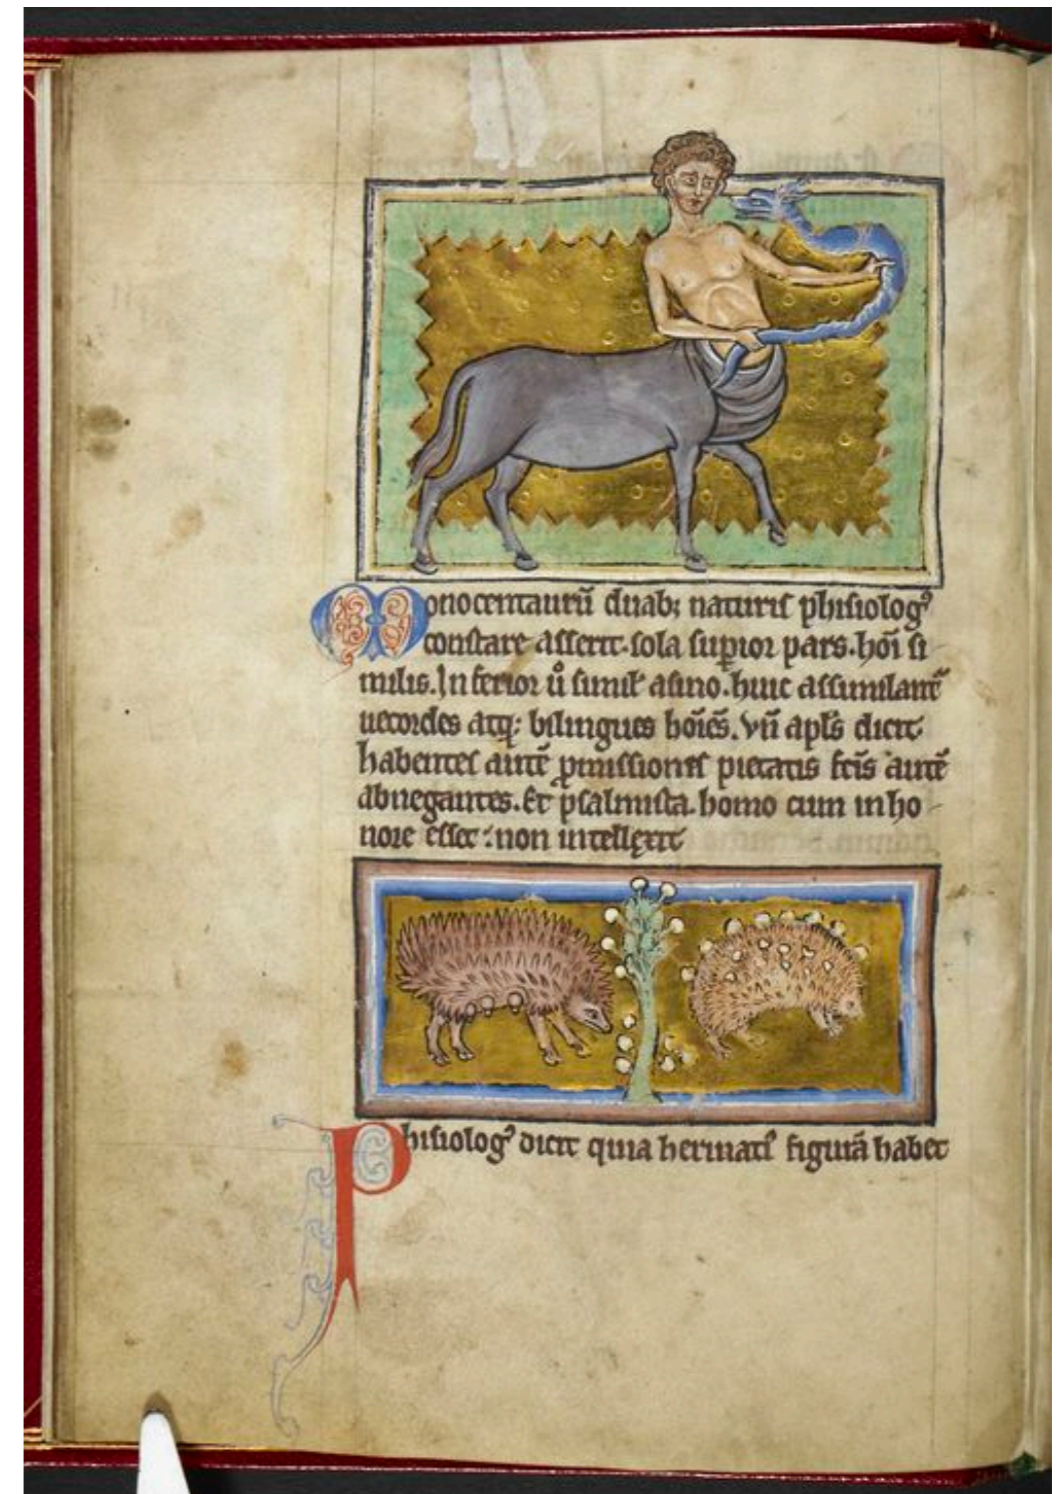 Monocentaurū duab; naturis phisiologꝰ
constare asserit. sola supior pars. hōi si
milis. Inferior ů simił asino. huic assimilant᷑
uecordes atq; bilingues hōiēs. Vñ apls dicit
habentes autē ꝓmissionis pietatis fcis autē
abnegantes. Et psalmista. homo cum in ho
nore esset: non intellexit
Phisiologꝰ dicit quia herinatiꝰ figurā habet